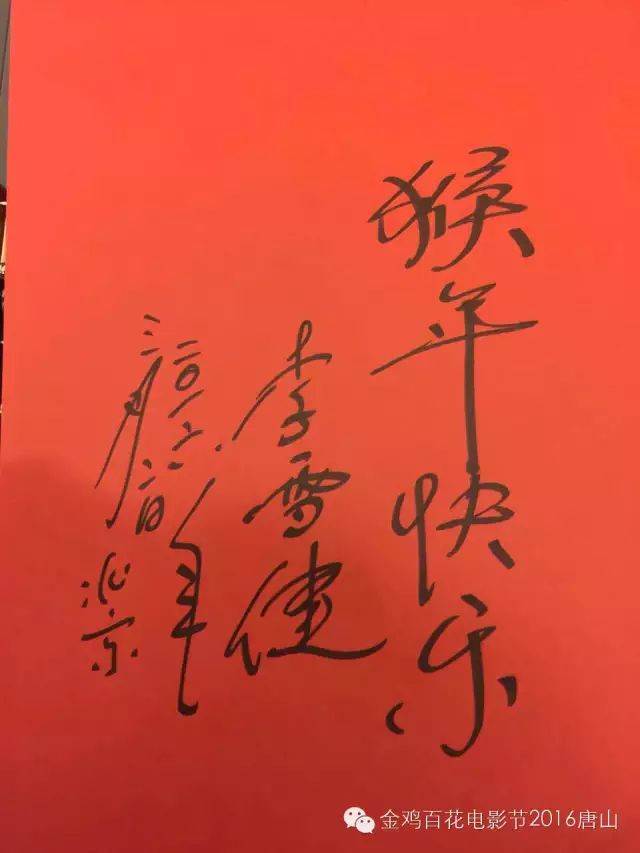 猴年快乐
李雪健
二〇一六年
三月 日
北京
金鸡百花电影节2016唐山